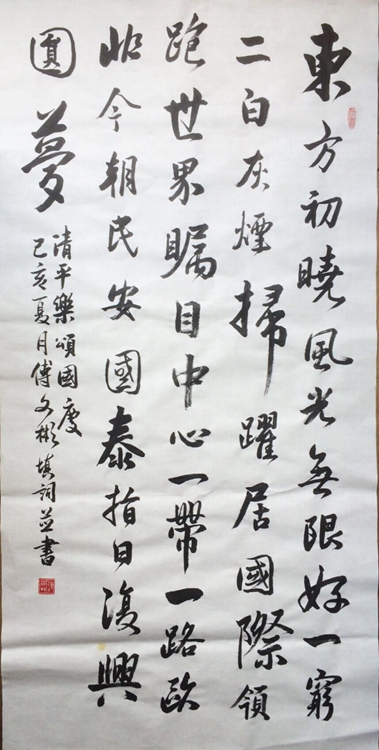 東方初曉風光無限好一窮
二白灰煙掃躍居國際領
跑世界矚目中心一帶一路歐
今朝民安國泰指日復興
圓夢
清平樂頌國慶
己亥夏月傅文彬填詞並書